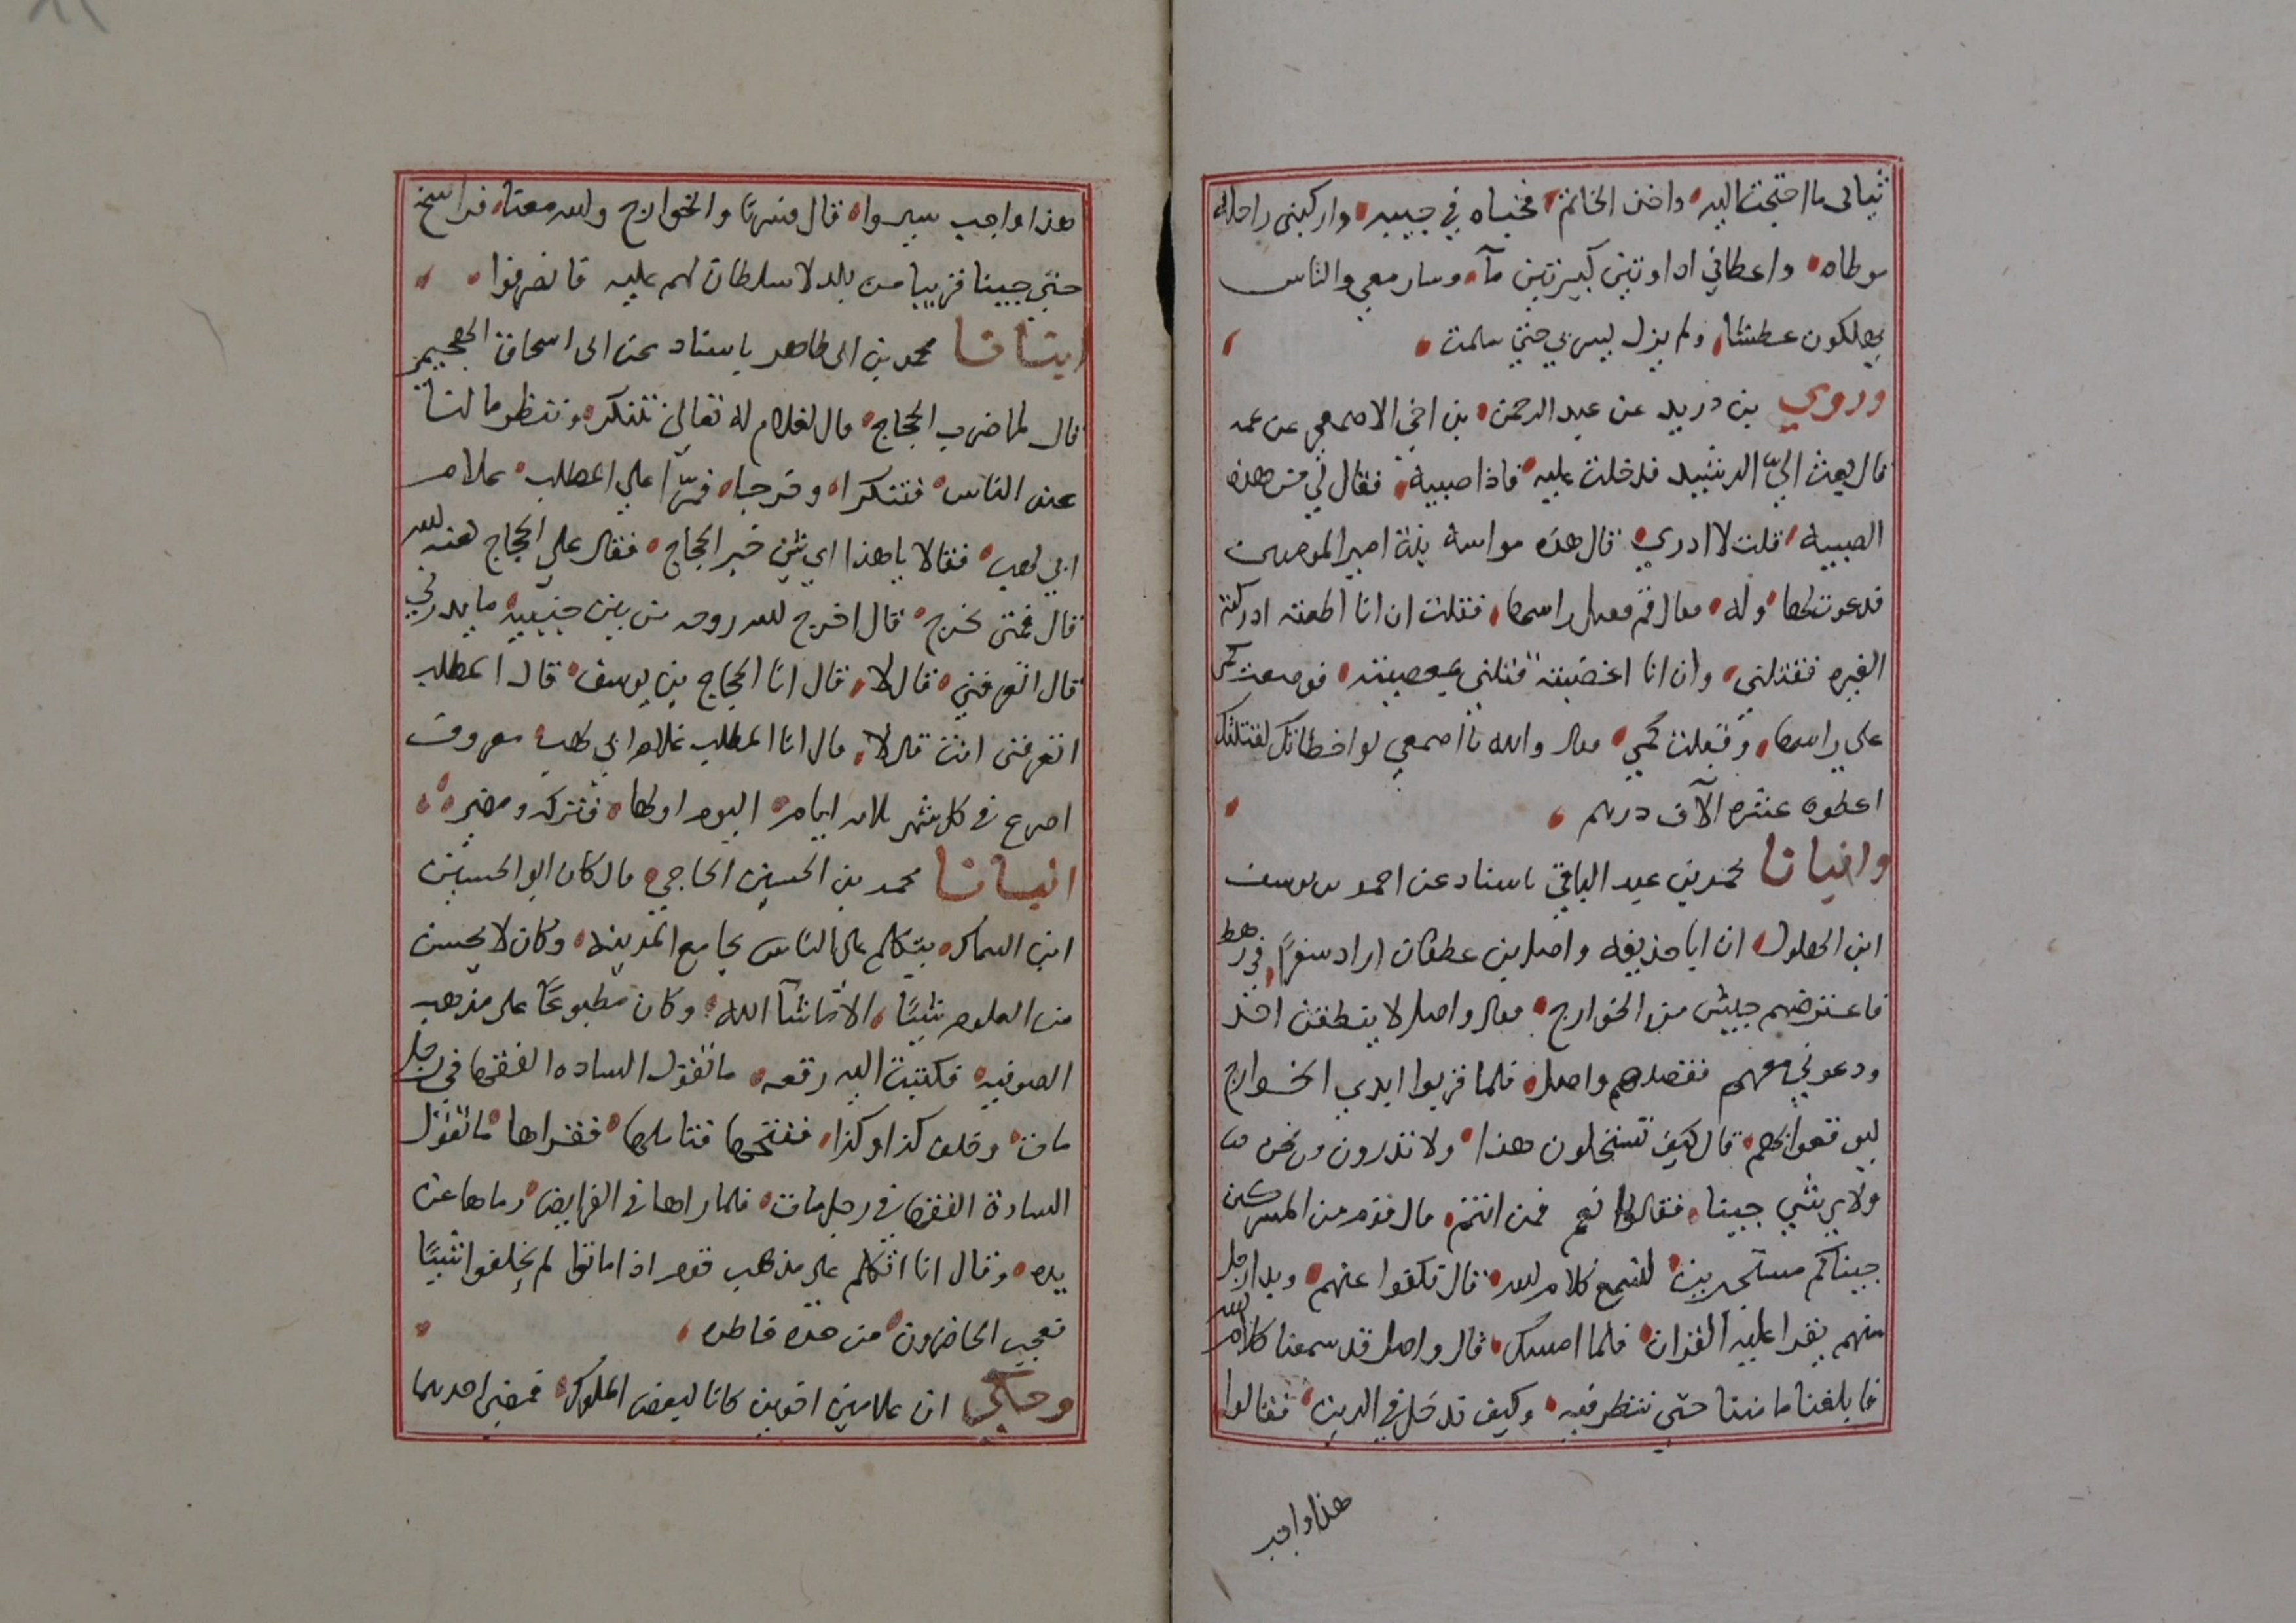 ثيابى ما احتجت اليه واخذ الخاتم فخباه في جيبه واركبنى راحله
موطاه واعطاني اداوتين كبيرتين مآء وسار معي والناس
يهلكون عطشا ولم يزل يبرني حتى سلمت
وروي بن دريد عن عبد الرحمن بن اخي الاصمعي عن عمه
قال بعث اليّ الرشيد فدخلت عليه فاذا صبية فقال لي من هذه
الصبية قلت لا ادري قال هذه مواسة بنة امير المومنين
فدعوت لها وله فقال قم فقبل راسها فقلت ان انا اطعته ادركته
الغيره فقتلني وان انا اغضبته قتلني بمعصيته فوضعت كمي
على راسها وقبلت كمي فقال والله يا اصمعي لو اخطاتك لقتلتك
اعطوه عشره الآف درهم
وانبانا محمد بن عبد الباقي باسناد عن احمد بن يوسف
ابن البهلول ان ابا حذيفه واصل بن عطفان اراد سفرًا في رهط
فاعترضهم جيش من الخوارج فقال واصل لا ينطقن احد
ودعوني معهم فقصدهم واصل فلما قربوا ابدي الخوارج
ليوقعوا بهم قال كيف تستحلون هذا ولا تدرون من نحن
ولاي شي جينا فقالوا نعم فمن انتم قال قوم من المشركين
جيناكم مستجيرين لنسمع كلام الله قال فكفوا عنهم وبدا رجل
منهم يقرا عليه القران فلما امسك قال واصل قد سمعنا كلام الله
فابلغنا مامننا حتى ننظر فيه وكيف ندخل في الدين فقالوا
هذا واجب
هذا واجب سيروا قال فسرنا والخوارج والله معنا فراسخ
حتى جينا قريبا من بلد لا سلطان لهم عليه فانصرفوا
انبانا محمد بن ابى طاهر باسناد عن ابى اسحاق الجهيمى
قال لما ضرب الحجاج قال لغلام له تعالى نتنكر وننظر ما لنا
عند الناس فتنكرا وخرجا فمرّا على المطلب غلام
ابي لهب فقالا يا هذا اي شي خبر الحجاج فقال على الحجاج لعنه الله
قال فمتى يخرج قال اخرج الله روحه من بين جنبيه ما يدريني
قال اتعرفني قال لا قال انا الحجاج بن يوسف قال المطلب
اتعرفنى انت قال لا قال انا المطلب غلام ابي لهب معروف
اصرع في كل شهر ثلاثه ايام اليوم اولها فتركه ومضى
انبانا محمد بن الحسين الحاجي قال كان ابو الحسين
ابن السماك يتكلم على الناس بجامع المدينه وكان لا يحسن
من العلوم شيئًا الا ما شآ الله وكان مطبوعًا على مذهب
الصوفيه فكتبت اليه رقعه ما تقول الساده الفقها في رجل
مات وخلف كذا وكذا ففتحها فتاملها فقراها ما تقول
السادة الفقها في رجل مات فلما راها في الفرايض رماها عن
يده وقال انا اتكلم على مذهب قوم اذا ماتوا لم يخلفوا شيئًا
تعجب الحاضرون من حدة خاطره
وحكي ان غلامين اخوين كانا لبعض الملوك فمضى احدهما